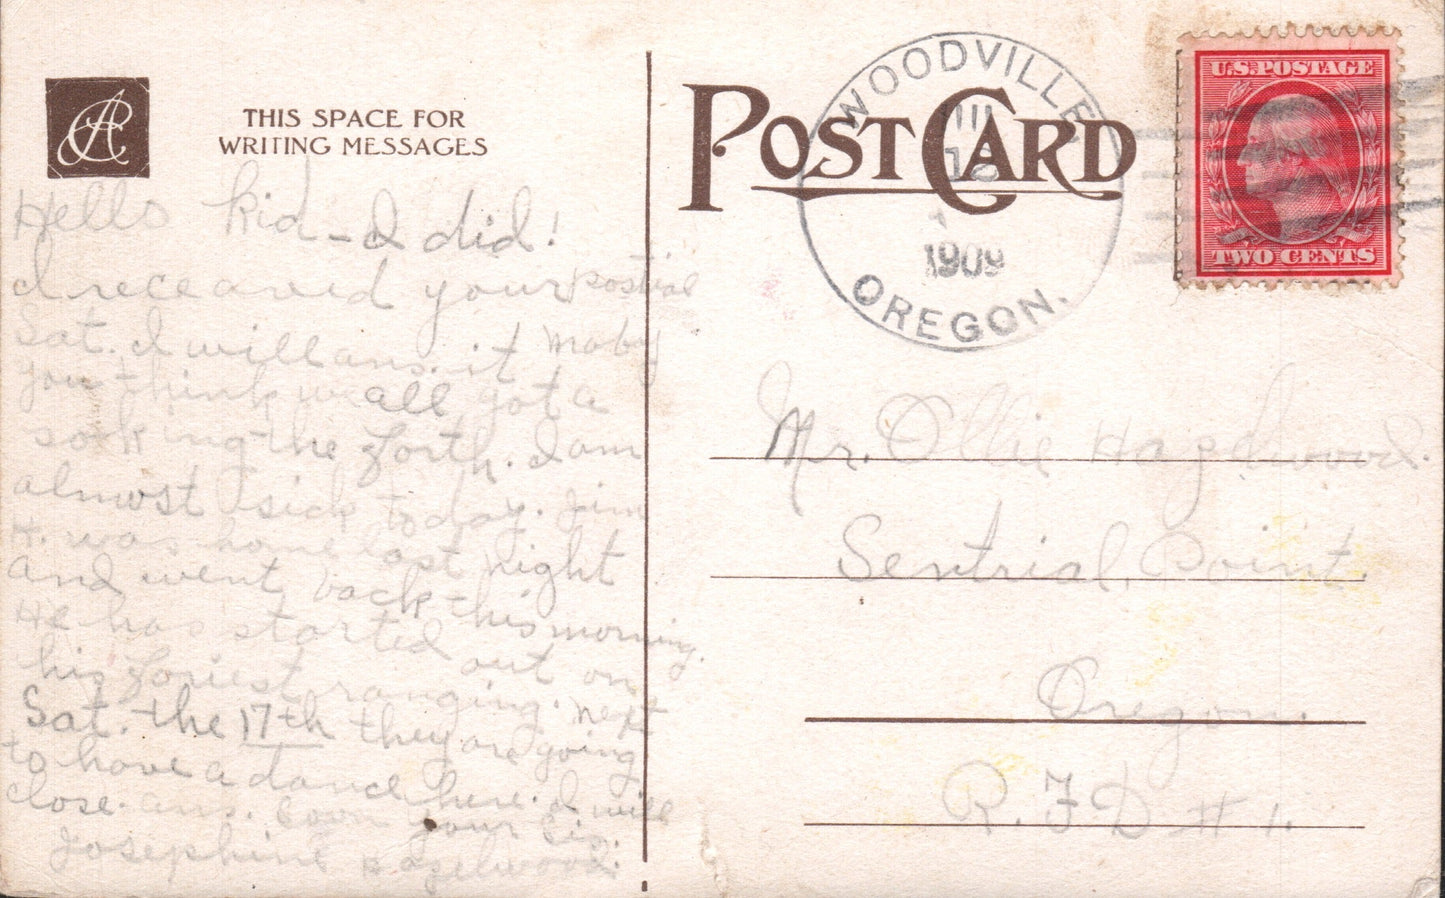 THIS SPACE FOR
WRITING MESSAGES
Hello kid - I did!
I receaved your postial
Sat. I will ans. it Maby
you think we all got a
sooking the forth. I am
almost sick today. Jim
H. was home last night
and went back this morning.
He has started out on
his foriest ranging. next
Sat. the 17th they are going
to have a dance here. I will
close. ans. soon your Sis.
Josephine Hazelwood.
POST CARD
WOODVILLE
1909
OREGON.
U.S. POSTAGE
TWO CENTS
Mr. Ollie Hazelwood.
Sentrial Point.
Oregon.
R.F.D #1.